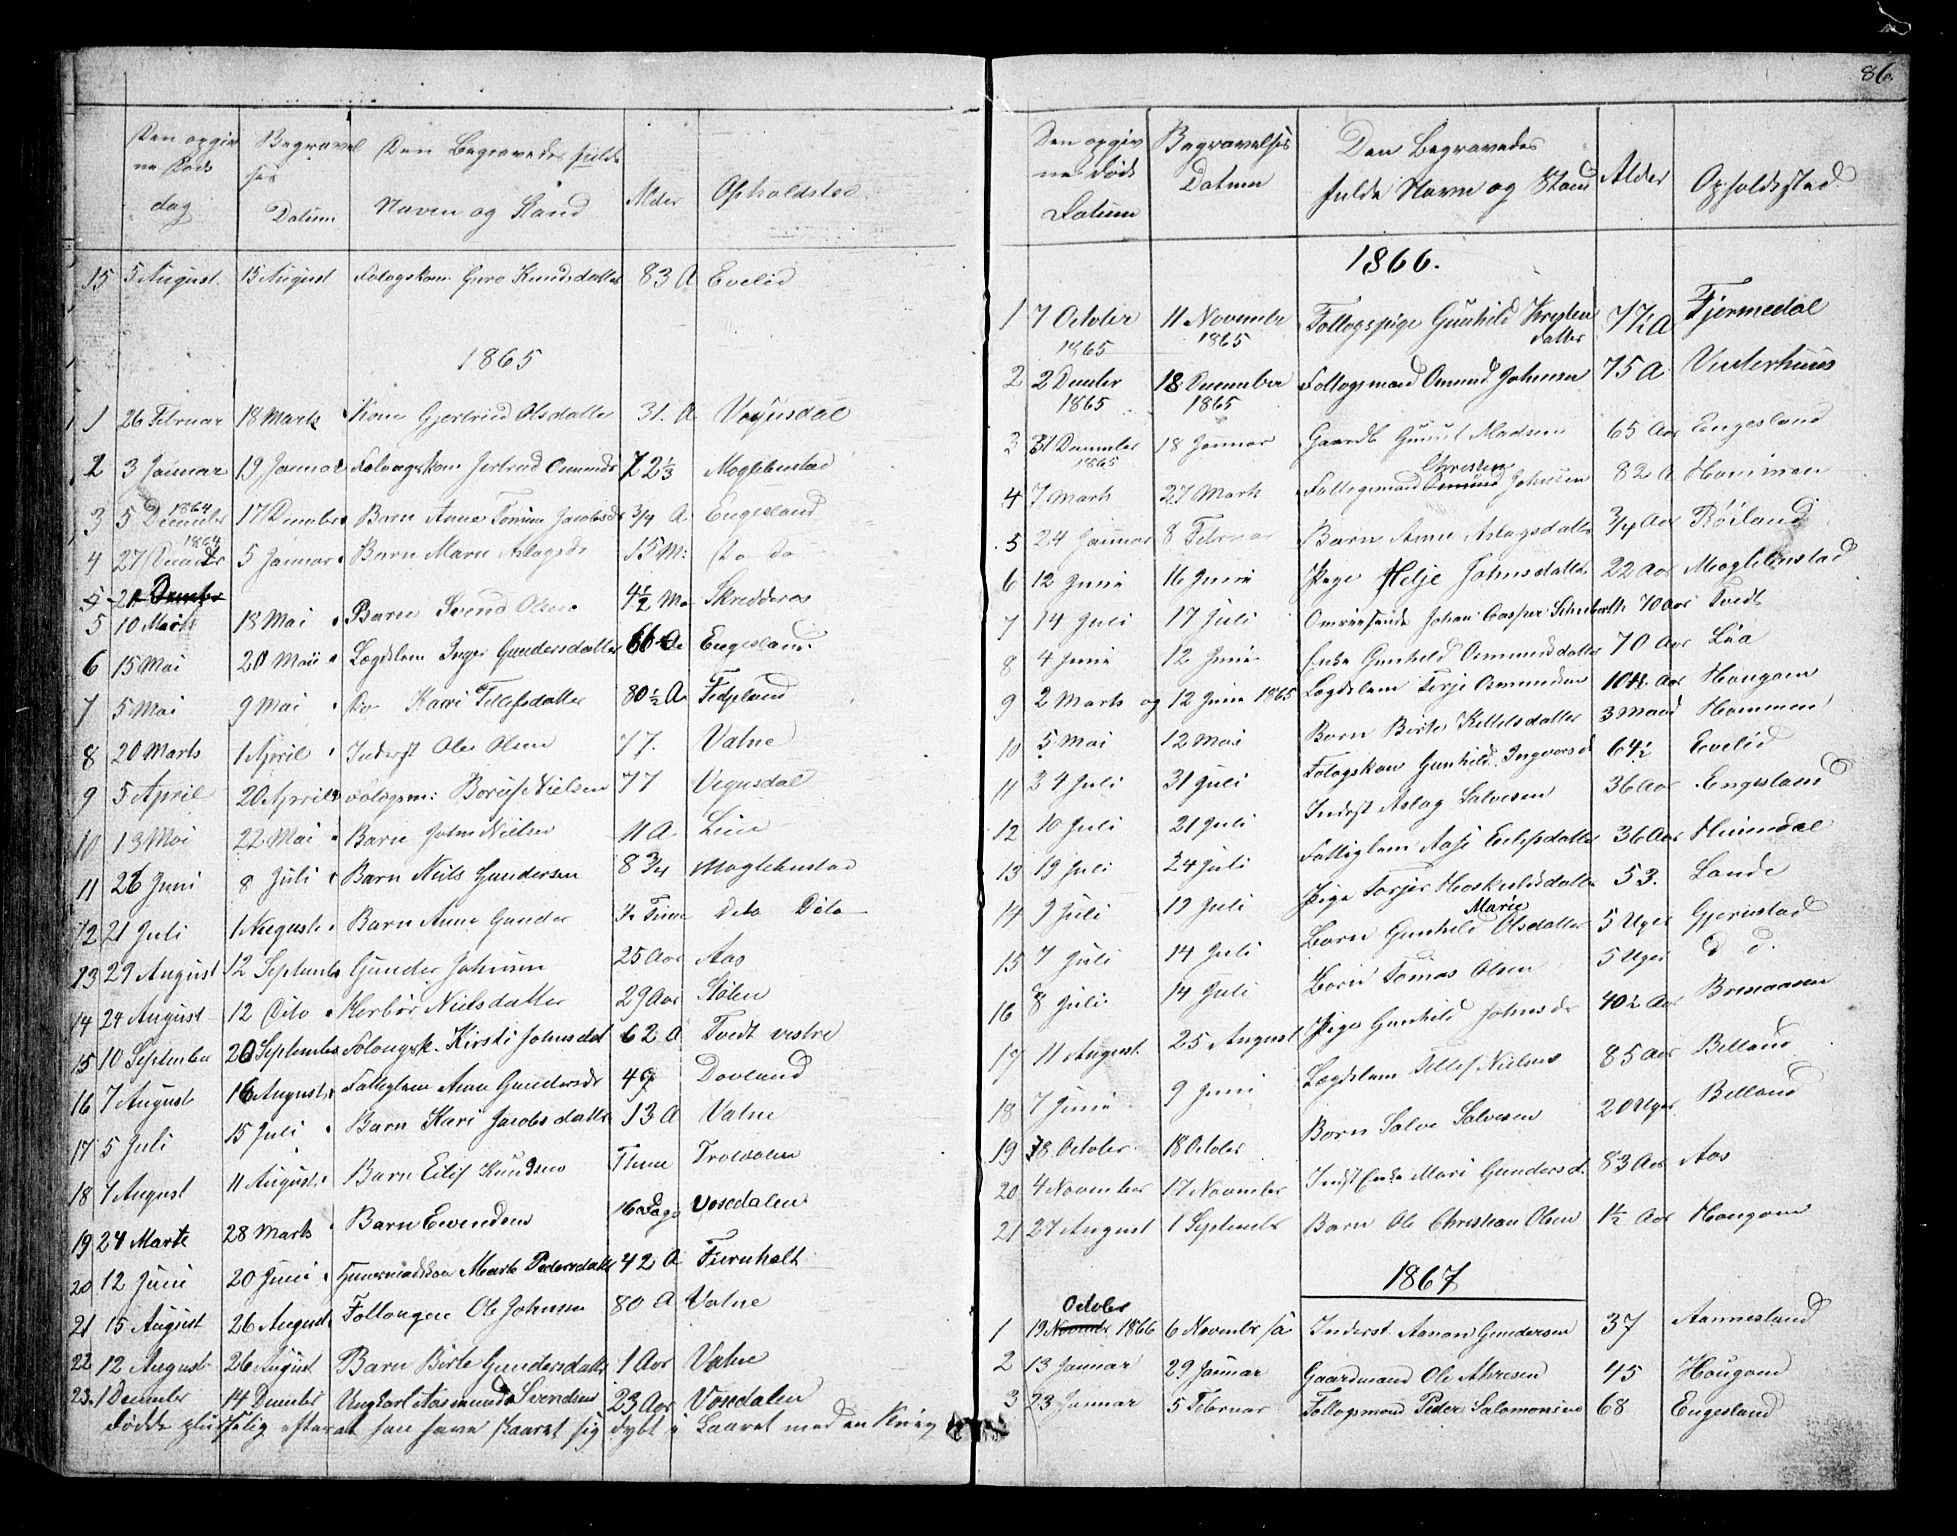 86.
Den opgiv
ne Døds
dag
Begravel
ses
Datum
Den Begravedes fulde
Navn og Stand
Alder
Opholdsted
15 5 August 15 August Fologskone Guro Knudsdatter 83 A Evelid
1865
1 26 Februar 18 Marts Kone Gjertrud Olsdatter 31. A Vegusdal
2 3 Januar 19 Januar Folaugskone Jertrud Osmunds 72 1/3 Moglebustad
1864
3 5 December 17 December Barn Anne Tomine Jacobsdr 3/4 A Engesland
1864
4 27 December 5 Januar Barn Maren Aslagsdr 15 M: Do Do
5 21 December
5 10 Marts 18 Mai Barn Svend Olsen 4 1/2 Ma Skredderos
6 15 Mai 20 Mai Lægdslem Inger Gundersdatter 66 Engesland
7 5 Mai 9 Mai Do Kari Tellefsdatter 80 1/2 A Fidjeland
8 20 Marts 1 April Inderst Ole Olsen 77. Vatne
9 5 April 20 April Fologsm: Nielsen 77 Vegusdal
10 13 Mai 22 Mai Barn John Nielsen 11 A Lien
11 26 Juni 8 Juli Barn Niels Gundersen 8 3/4 Moglebustad
12 21 Juli 1 August Barn Anne Gunder Time Dito Dito
13 29 August 12 September Gunder Johnsen 25 Aar Aas
14 24 August 12 Dito Herbør Nielsdatter 29 Aar Stølen
15 10 September 20 September Folaugsk. Kirsti Johnsdat 62 A Tvedt vestre
16 7 August 16 August Fattiglem Anne Gundersdr 49 Dovland
17 5 Juli 15 Juli Barn Kari Jacobsdatter 13 A Vatne
18 7 August 11 August Barn Eilif Knudsen Time
19 24 Marts 28 Marts Barn 16 Dage Vosedalen
20 12 Juni 20 Juni Marte Pedersdatt 42 A
21 15 August 26 August Ole Johnsen 80 A Vatne
22 12 August 26 August Barn Birte Gundersdatter 1 Aar Vatne
23. 1 December 14 December Ungkarl Aasmund Svendsen 23 Aar Vosedalen
Døde efter at han have skaaret sig dybt i Laaret med en Kniv
Den opgiv
ne Døds
Datum
Begravelses
Datum
Den Begravedes
fulde Navn og Stand
Alder
Opholdsstad
1866.
1 7 October 11 November Follogspige Gunhild Kristen 77 1/2 A Fjermedal
1865 1865 datter
2 2 Dember 18 December Follogsmand Osmund Johnsen 75 A Vinterhuus
1865 1865
3 31 December 18 Januar Gaardb Gunuf Madsen 65 Aar Engesland
1865
Christen
4 7 Marts 27 Marts Follogsmand Osmund Johnsen 82 A Hammen
5 24 Januar 8 Februar Barn Anne Aslagsdatter 3/4 Aar Røiland
6 12 Juni 16 Juni Pige Helje Johnsdatter 22 Aar Moglebustad
7 14 Juli 17 Juli Omreisende Johan Casper Schuberth 70 Aar Tvedt
8 4 Juni 12 Juni Enke Gunhild Osmundsdatter 70 Aar Lia
9 2 Marts og 12 Juni 1865 Lægdslem Terje Osmundsen Aar Hougom
10 5 Mai 12 Mai Barn Birte Kittelsdatter 3 Maad Hammen
11 24 Juli 31 Juli Fologskone Gunhild Ingvarsd 64 1/2 Evelid
12 10 Juli 21 Juli Inderst Aslag Salvesen 36 Aar Engesland
13 19 Juli 24 Juli Fattiglem Aase Eilefsdatter 36 Aar
14 9 Juli 19 Juli Pige Torjer Hoskuldsdatter 53. Lande
Marie
15 7 Juli 14 Juli Barn Gunhild Olsdatter 5 Uger Gjerustad
16 8 Juli 14 Juli Barn Tomas Olsen 5 Uger d d.
17 11 August 25 August Pige Gunhild Johnsdr 40 1/2 Aar
18 7 Juni 9 Juni Lægdslem Tellef Nielsen 85 Aar Belland
19 8 October 18 October Barn Salve Salvesen 20 Uger Belland
20 4 November 17 November Indst Enke Mari Gundersd. 83 Aar Aas
21 27 August 1 September Barn Ole Christian Olsen 1 1/2 Aar Hougom
1867
October
1 19 November 1866 6 November Inderst Aanon Gundersen 37 Aannesland
2 13 Januar 29 Januar Gaardmand Ole Ahresen 45 Hougom
3 23 Januar 5 Februar Follogsmand Peder Salomonsen 68 Engesland